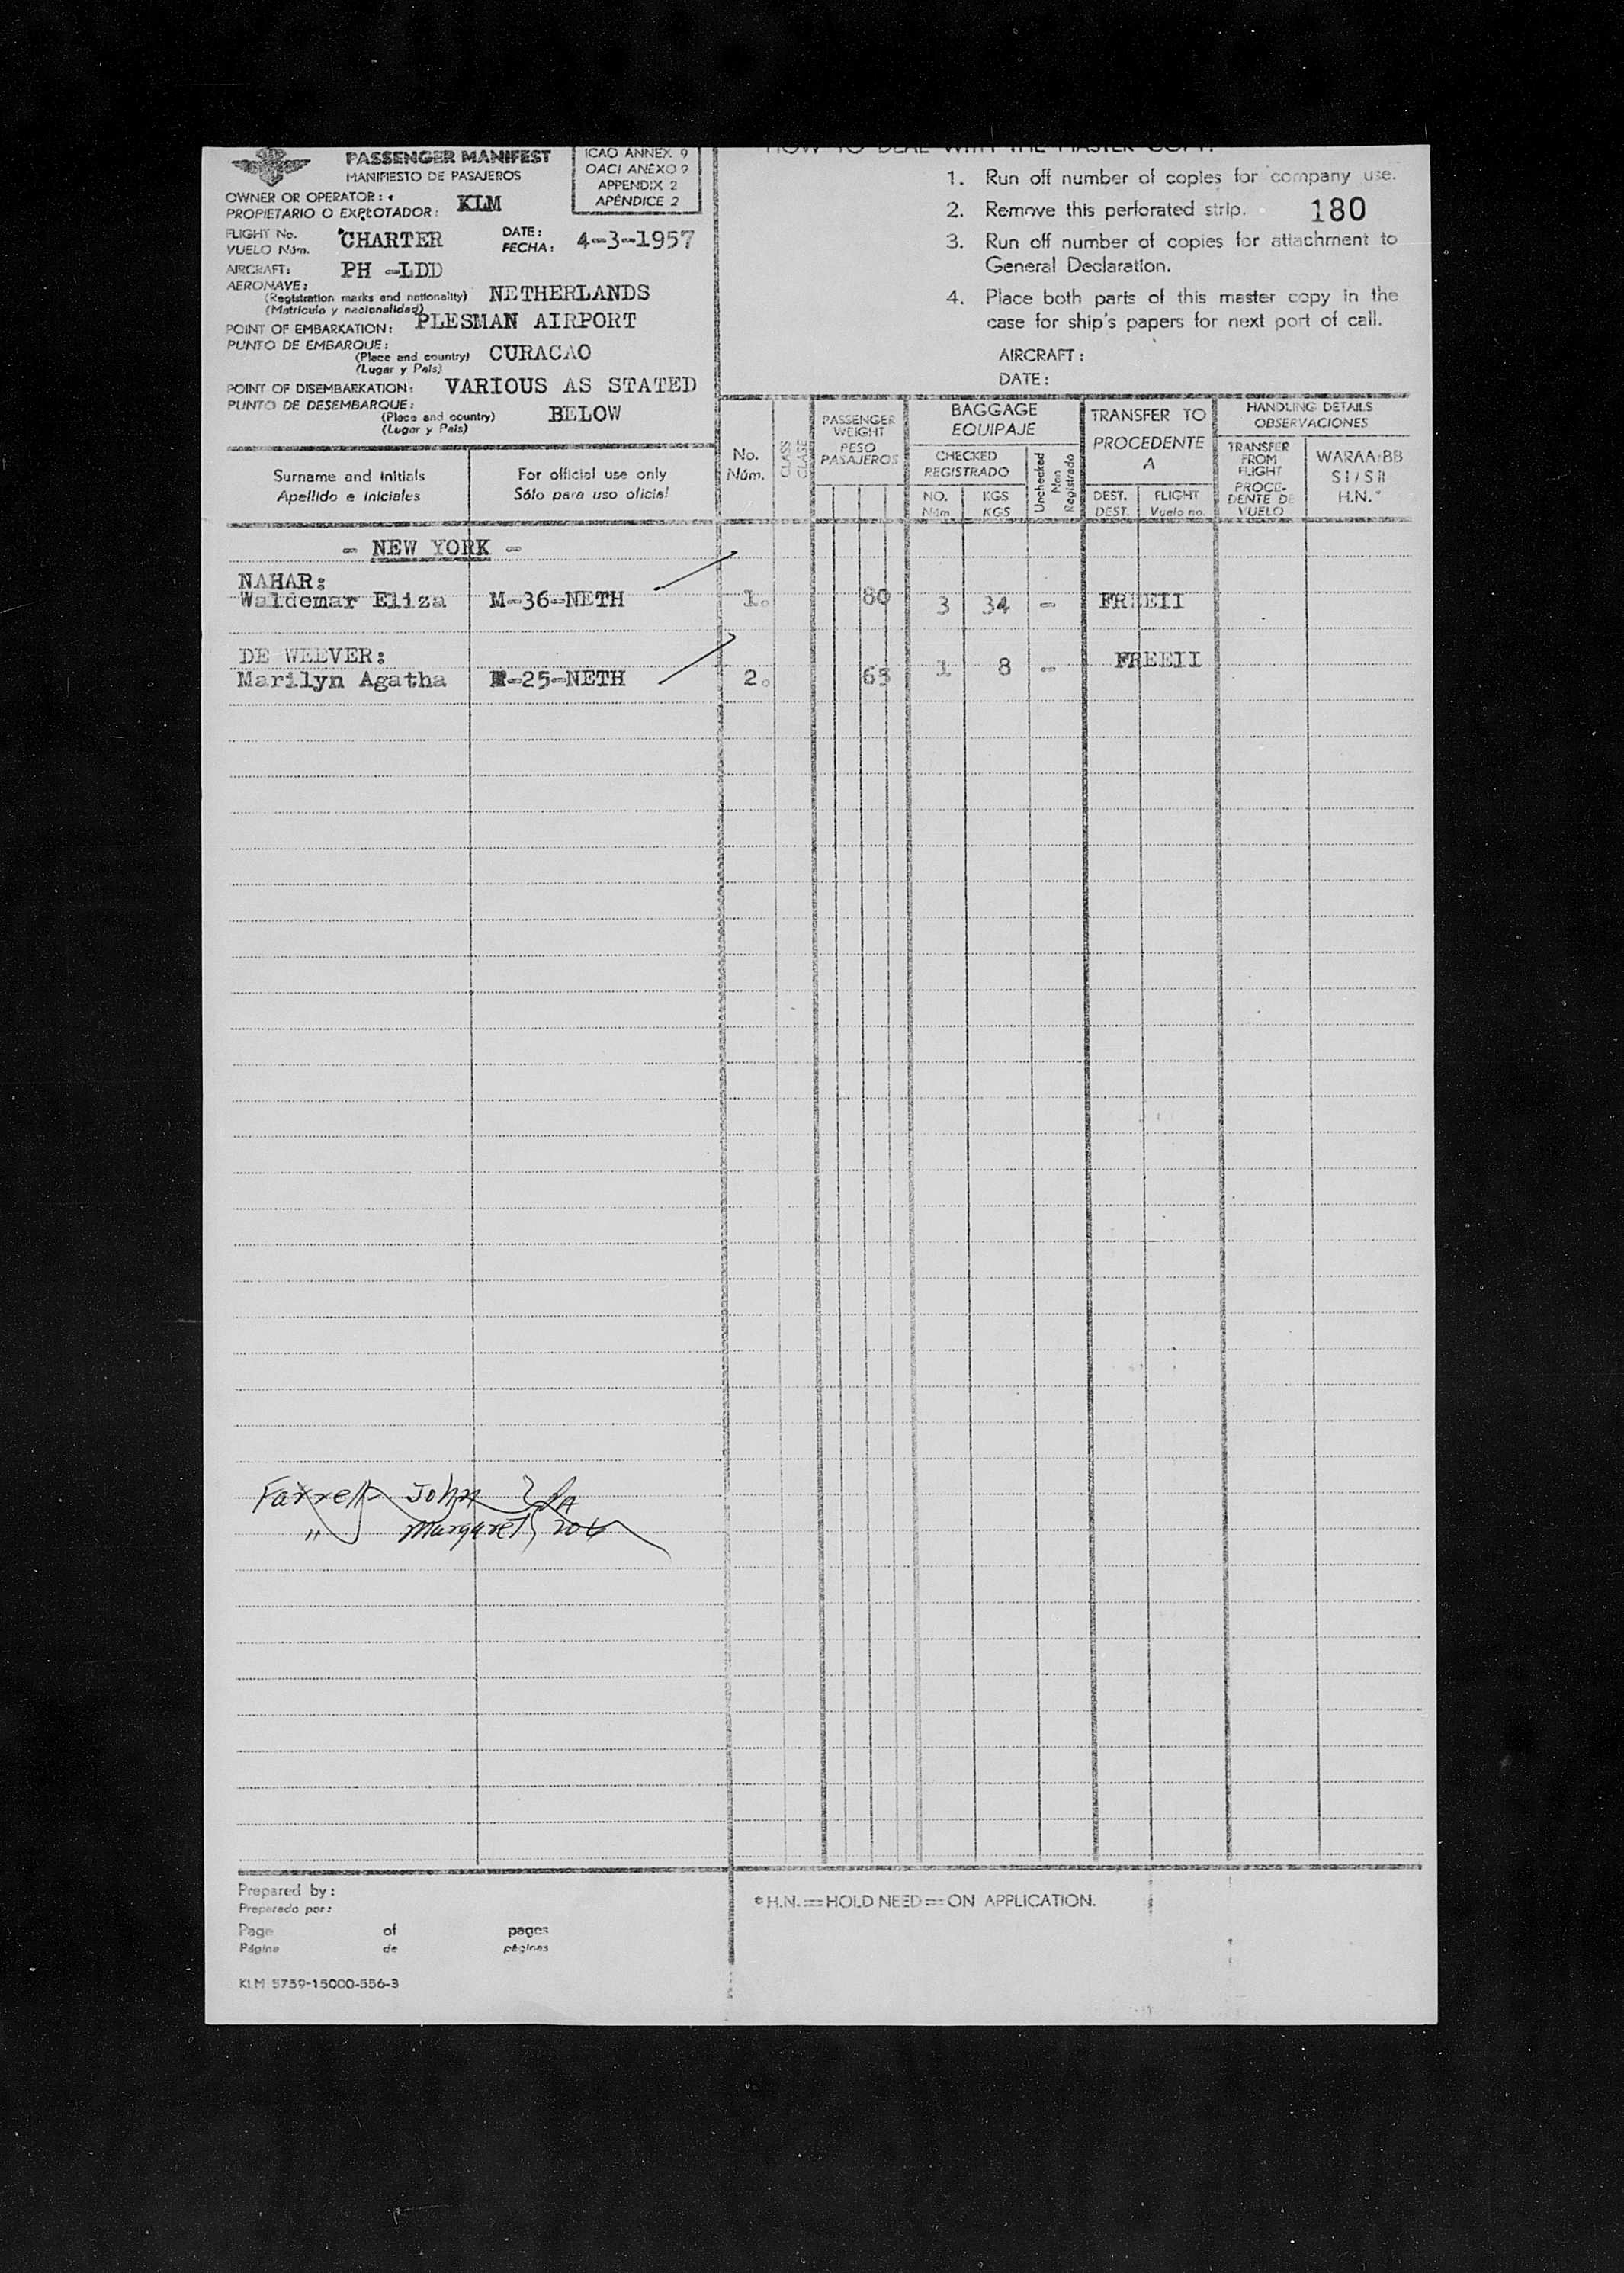 PASSENGER MANIFEST
MANIFIESTO DE PASAJEROS
ICAO ANNEX 9
OACI ANEXO 9
APPENDIX 2
APÉNDICE 2
OWNER OR OPERATOR:
PROPIETARIO O EXPLOTADOR: KLM
FLIGHT No. CHARTER
VUELO Núm.
DATE:
FECHA: 4-3-1957
AIRCRAFT: PH -LDD
AERONAVE:
(Registration marks and nationality) NETHERLANDS
(Matrícula y nacionalidad)
POINT OF EMBARKATION: PLESMAN AIRPORT
PUNTO DE EMBARQUE:
(Place and country) CURACAO
(Lugar y País)
POINT OF DISEMBARKATION: VARIOUS AS STATED
PUNTO DE DESEMBARQUE:
(Place and country) BELOW
(Lugar y País)
HOW TO DEAL WITH THE MASTER COPY.
1. Run off number of copies for company use.
2. Remove this perforated strip. 180
3. Run off number of copies for attachment to
General Declaration.
4. Place both parts of this master copy in the
case for ship's papers for next port of call.
AIRCRAFT:
DATE:
Surname and initials
Apellido e iniciales
For official use only
Sólo para uso oficial
No.
Núm.
CLASS
CLASE
PASSENGER
WEIGHT
PESO
PASAJEROS
BAGGAGE
EQUIPAJE
CHECKED
REGISTRADO
NO. KGS
Núm KGS
Unchecked
Non
Registrado
TRANSFER TO
PROCEDENTE
A
DEST. FLIGHT
DEST. Vuelo no.
HANDLING DETAILS
OBSERVACIONES
TRANSFER
FROM
FLIGHT
PROCE-
DENTE DE
VUELO
WARAA:BB
SI/SII
H.N.*
- NEW YORK -
NAHAR:
Waldemar Eliza M-36-NETH 1. 80 3 34 - FREEII
DE WEEVER:
Marilyn Agatha -25-NETH 2. 65 1 8 - FREEII
Farrell John
" Margaret
Prepared by:
Preparado por:
Page of pages
Página de páginas
KLM 5759-15000-556-3
*H.N.=HOLD NEED=ON APPLICATION.